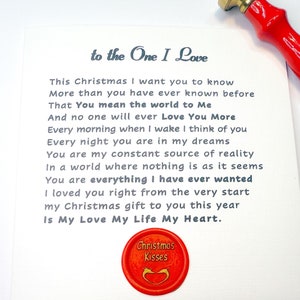 to the One I Love
This Christmas I want you to know
More than you have ever known before
That You mean the world to Me
And no one will ever Love You More
Every morning when I wake I think of you
Every night you are in my dreams
You are my constant source of reality
In a world where nothing is as it seems
You are everything I have ever wanted
I loved you right from the very start
my Christmas gift to you this year
Is My Love My Life My Heart.
Christmas
Kisses